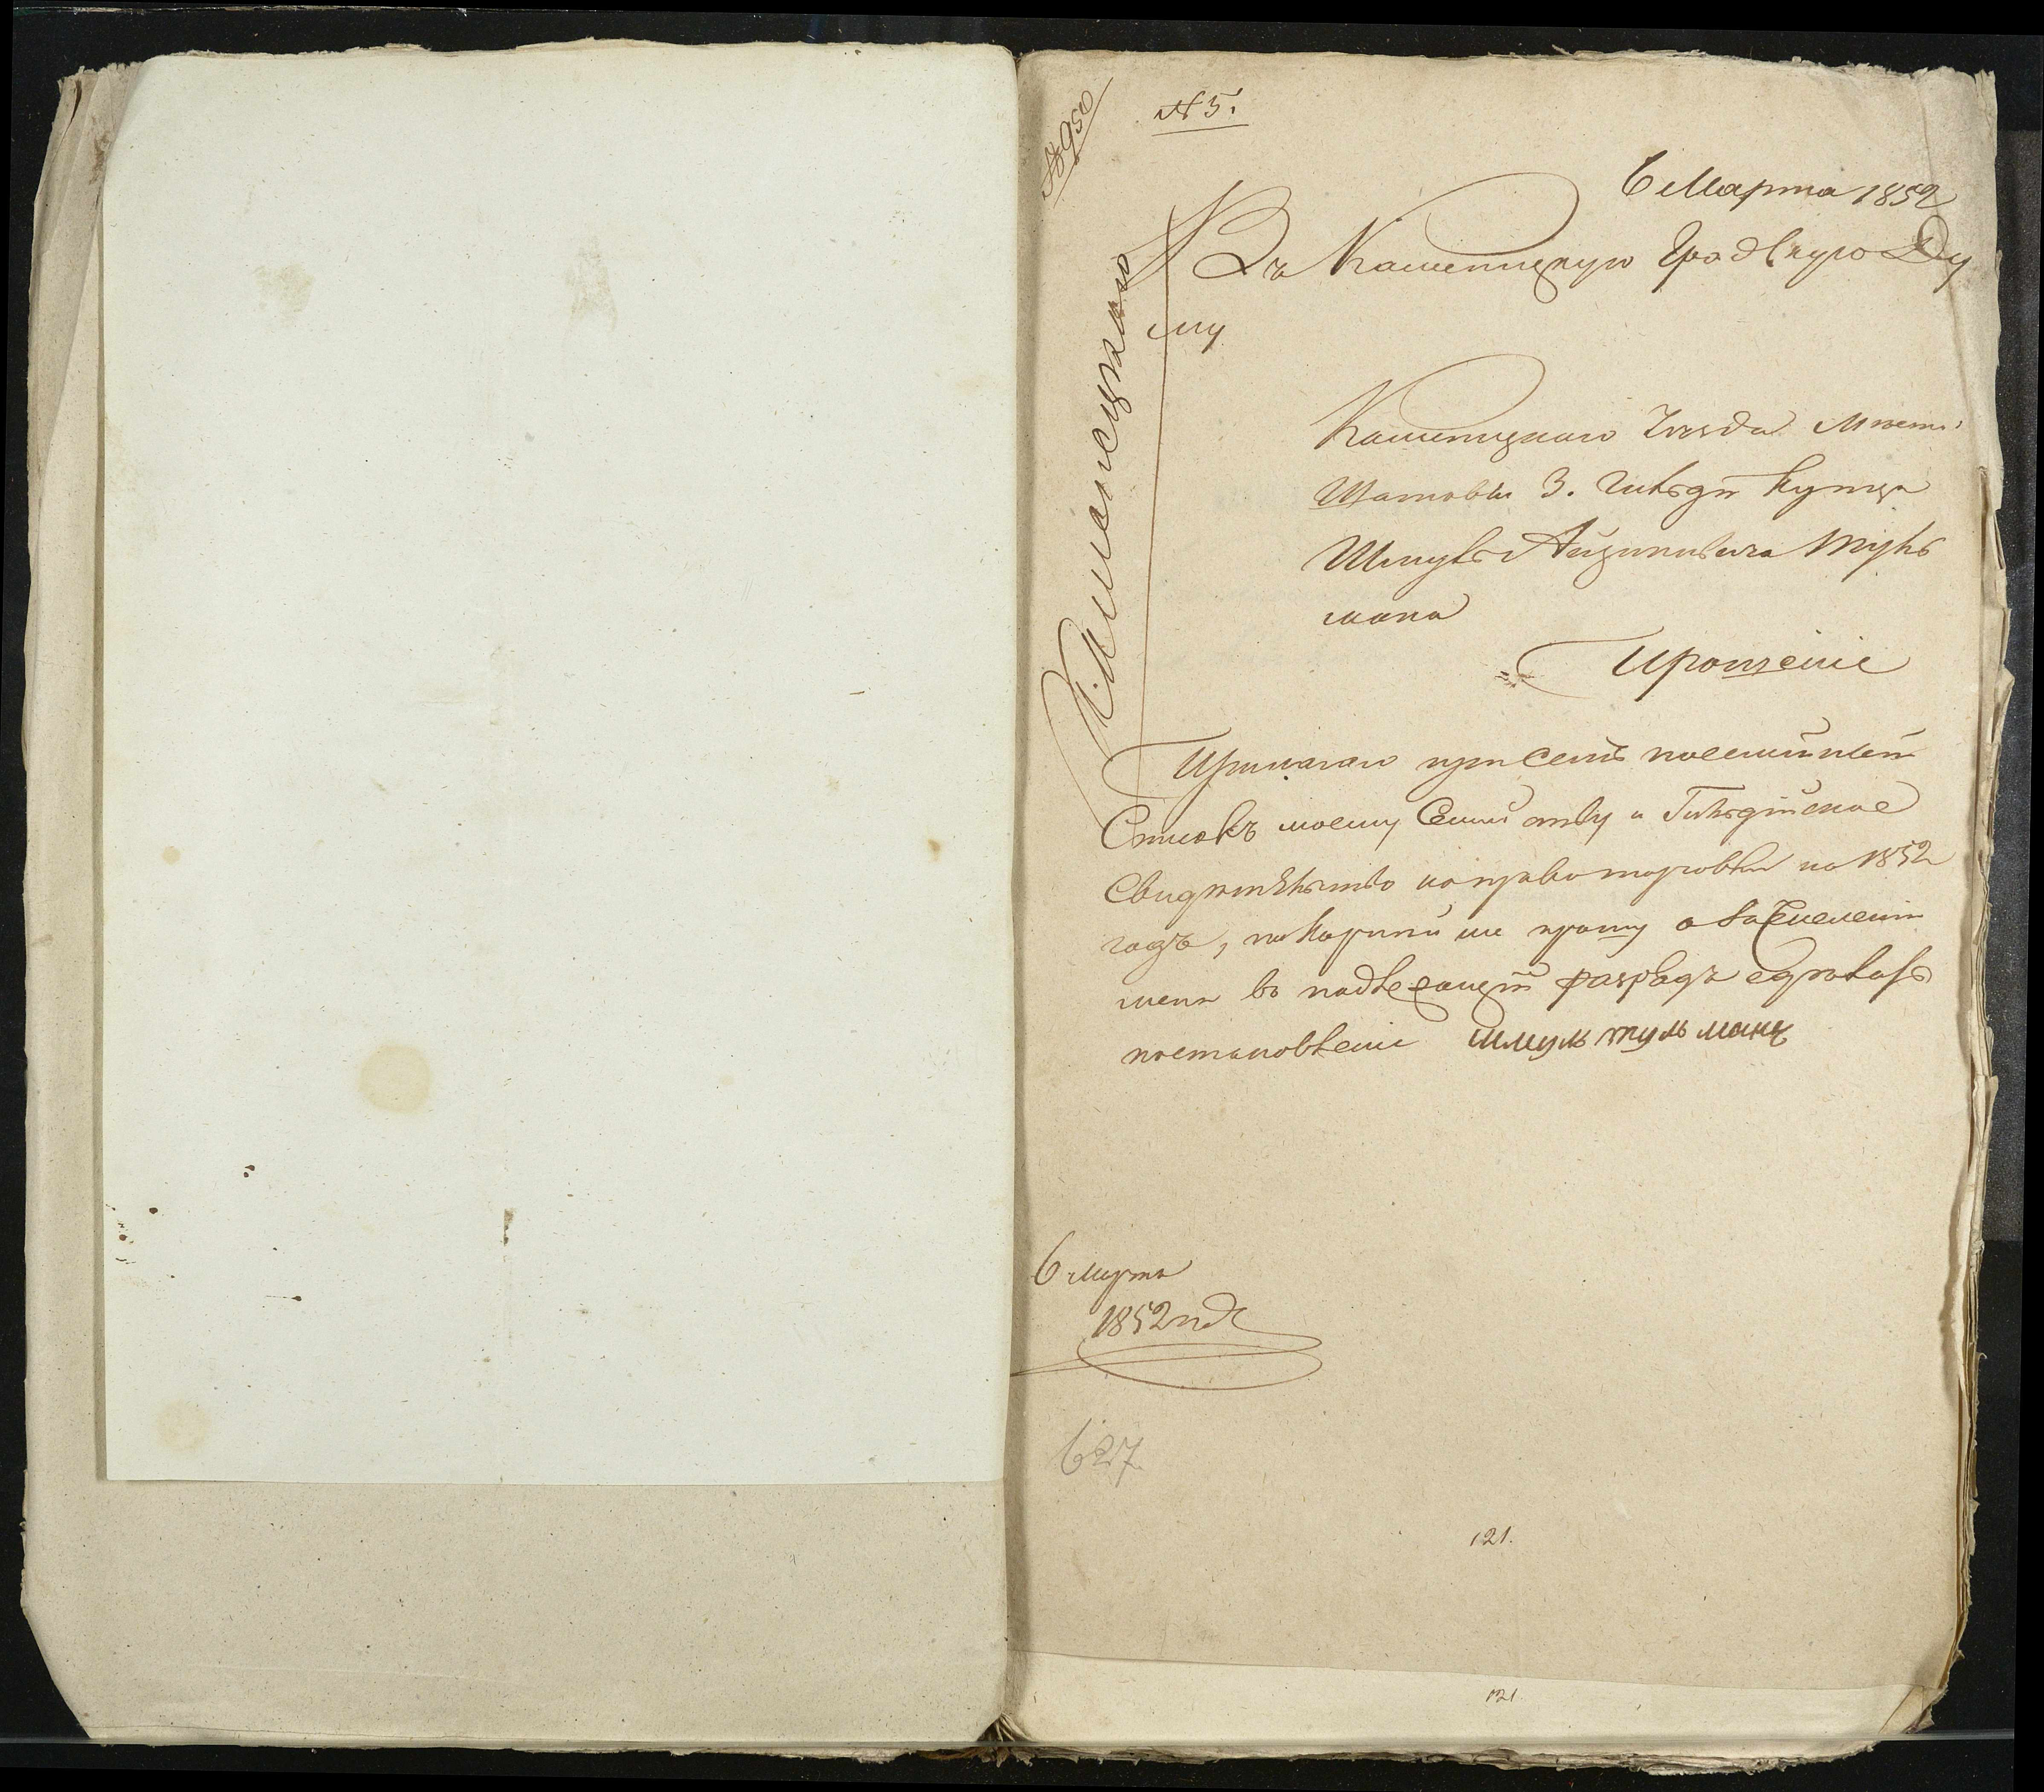 № 950
№ 5.
6 Марта 1852
Въ Каменецкую Градскую Ду
му
Каменецкаго Уезда Мѣст.
Шатовы 3. гильдіи купца
Шмуль Айзиковича Туль
мана
Прошеніе
Прилагаю при семъ посемейный
Списокъ моему Семейству и Гильдійское
Свидѣтельство на право торговли на 1852
годъ, покорнейше прошу о
мена въ подлежащій разрядъ сдѣлать
постановленіе шмуль тульманъ
6 марта
1852 год
627
121.
121